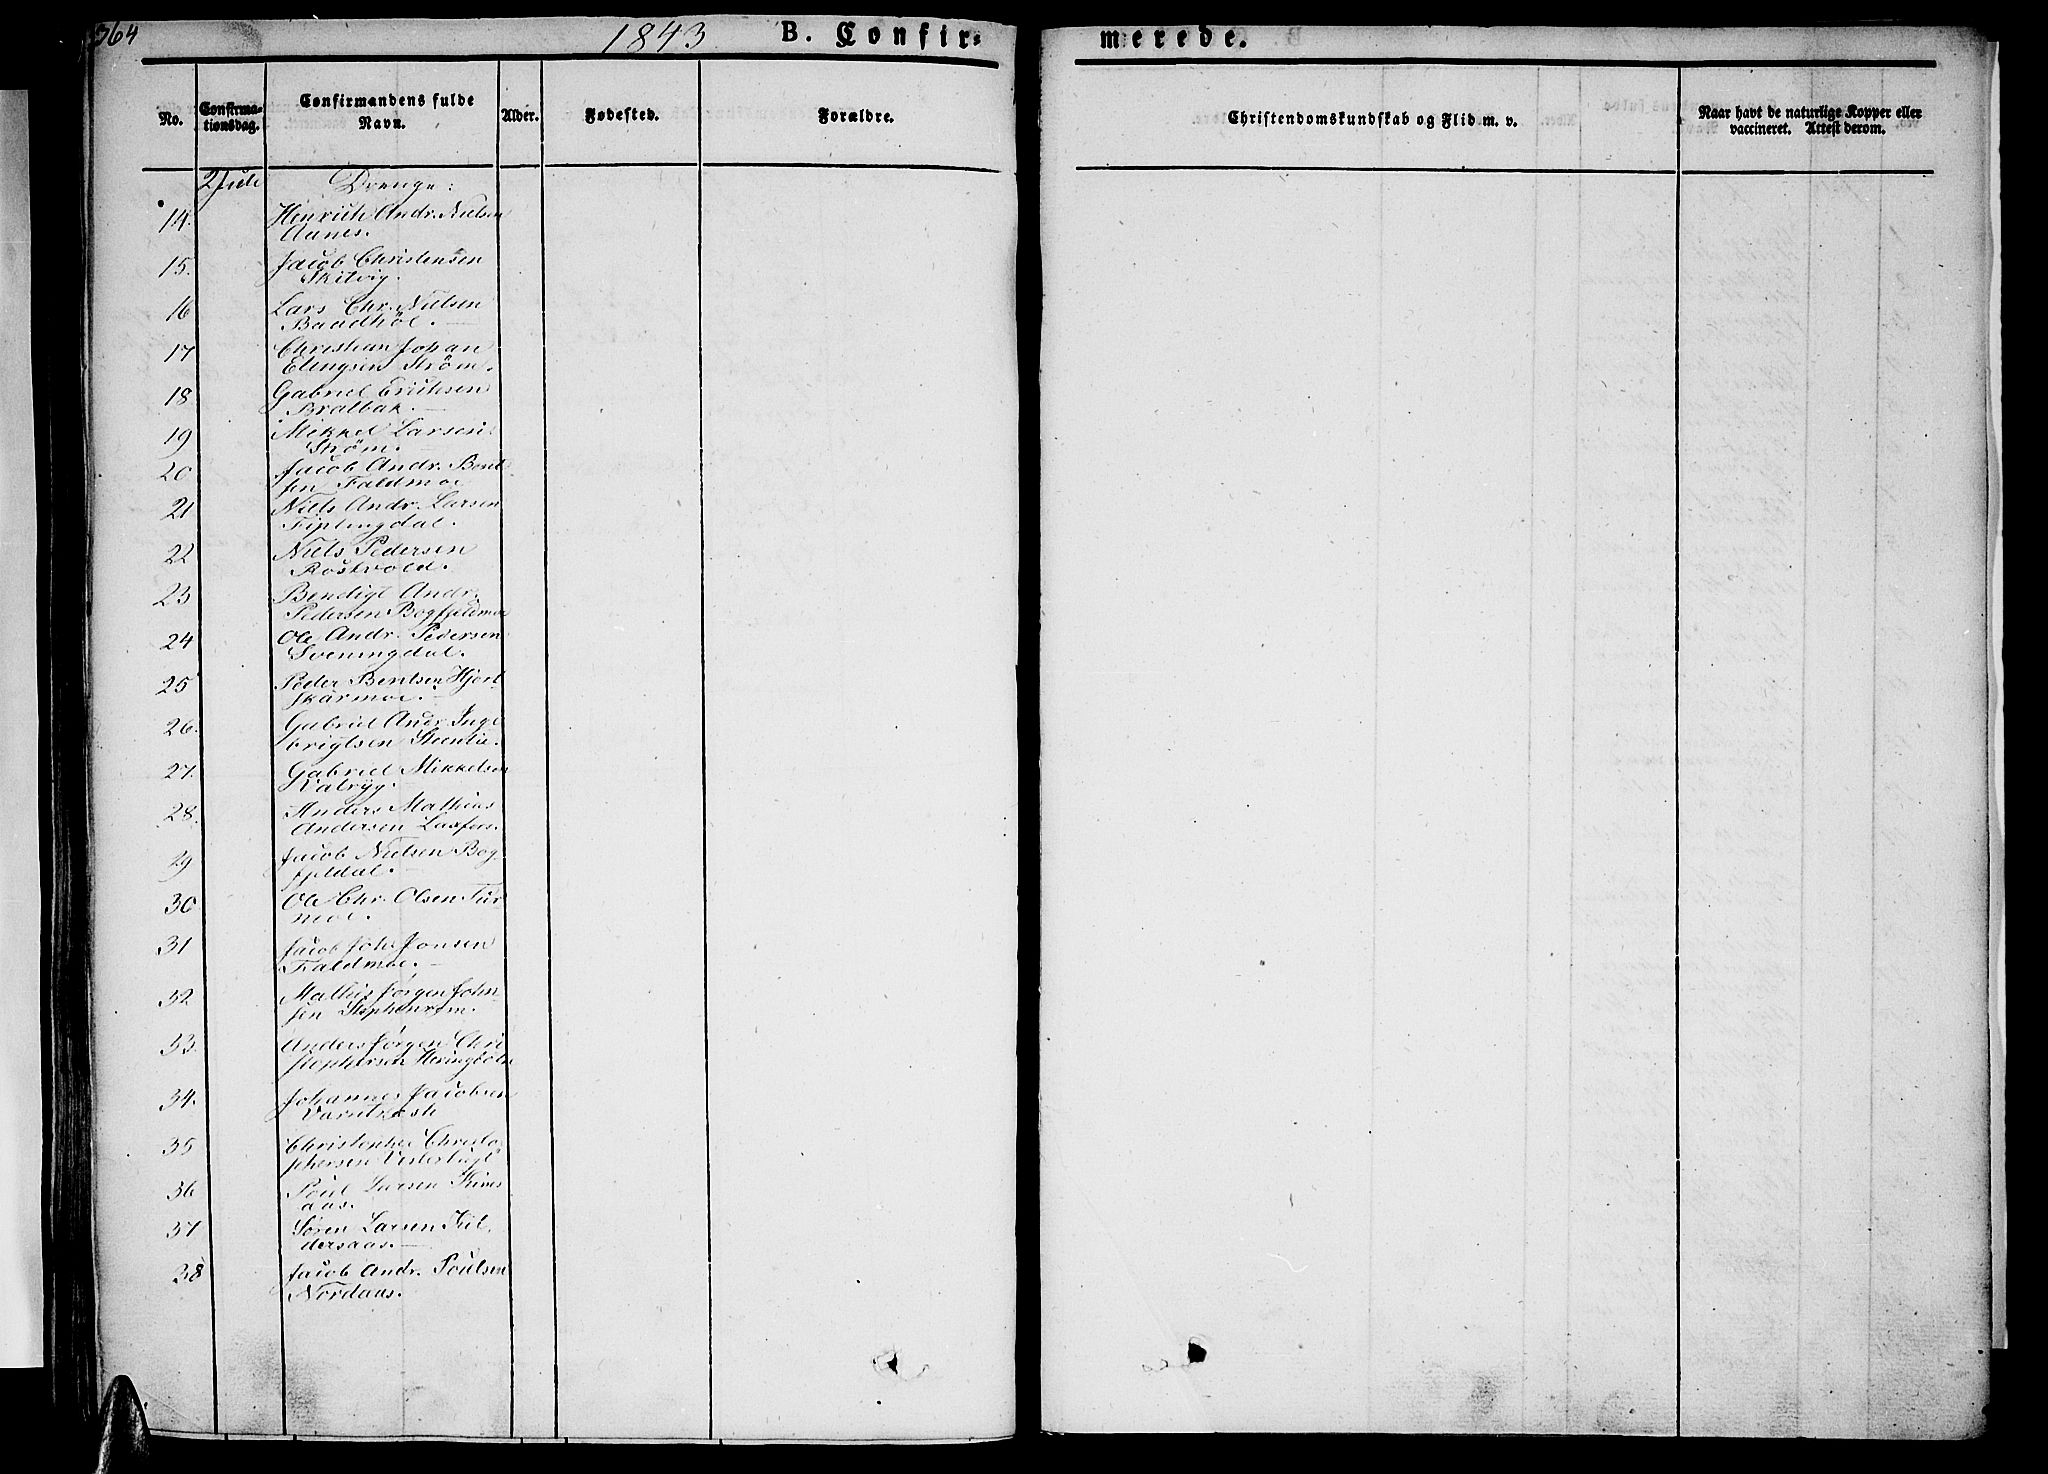 364
1843 B. Confir-
merede.
No.
Confirma-
tionsdag.
Confirmandens fulde
Navn.
Alder.
Fødested.
Forældre.
Christendomskundskab og Flid m. v.
Naar havt de naturlige Kopper eller
vaccineret. Attest derom.
2 Juli Drenge:
14. Hinrich Andr. Nielsen
Aanes.
15. Jacob Christensen
16 Lars Chr. Nielsen
Baadhöl.
17 Christian Johan
Elingsen Strøm.
18 Gabriel Erichsen
Bratbak.
19 Mikkel Larsen
Strøm.
20 Jacob Andr. Bent
sen Faldmoe
21 Niels Andr. Larsen
Fiplingdal.
22 Niels Pedersen
23 Bendigt Andr.
Pedersen Bogfjeldmoe
24 Ole Andr. Pedersen
Sveningdal.
25 Peder Bentsen Hjort
skarmoe.
26. Gabriel Andr. Inge
brigtsen
27. Gabriel Mikkelsen
Kalryg.
28. Anders Mathias
Andersen Laxfors.
29 Jacob Nielsen Bog
fjeldal.
30 Ole Chr. Olsen Tur
moe.
31 Jacob Joh. Jonsen
Faldmoe.
32 Mathis Jørgen John
sen
33. Anders Jørgen Chri
stophersen Heringbotn
34. Johannes Jacobsen
35 Christopher Christo
phersen
36 Poul Larsen
aas.
37 Søren Larsen Kul
dersaas.
38 Jacob Andr. Poulsen
Nordaas.